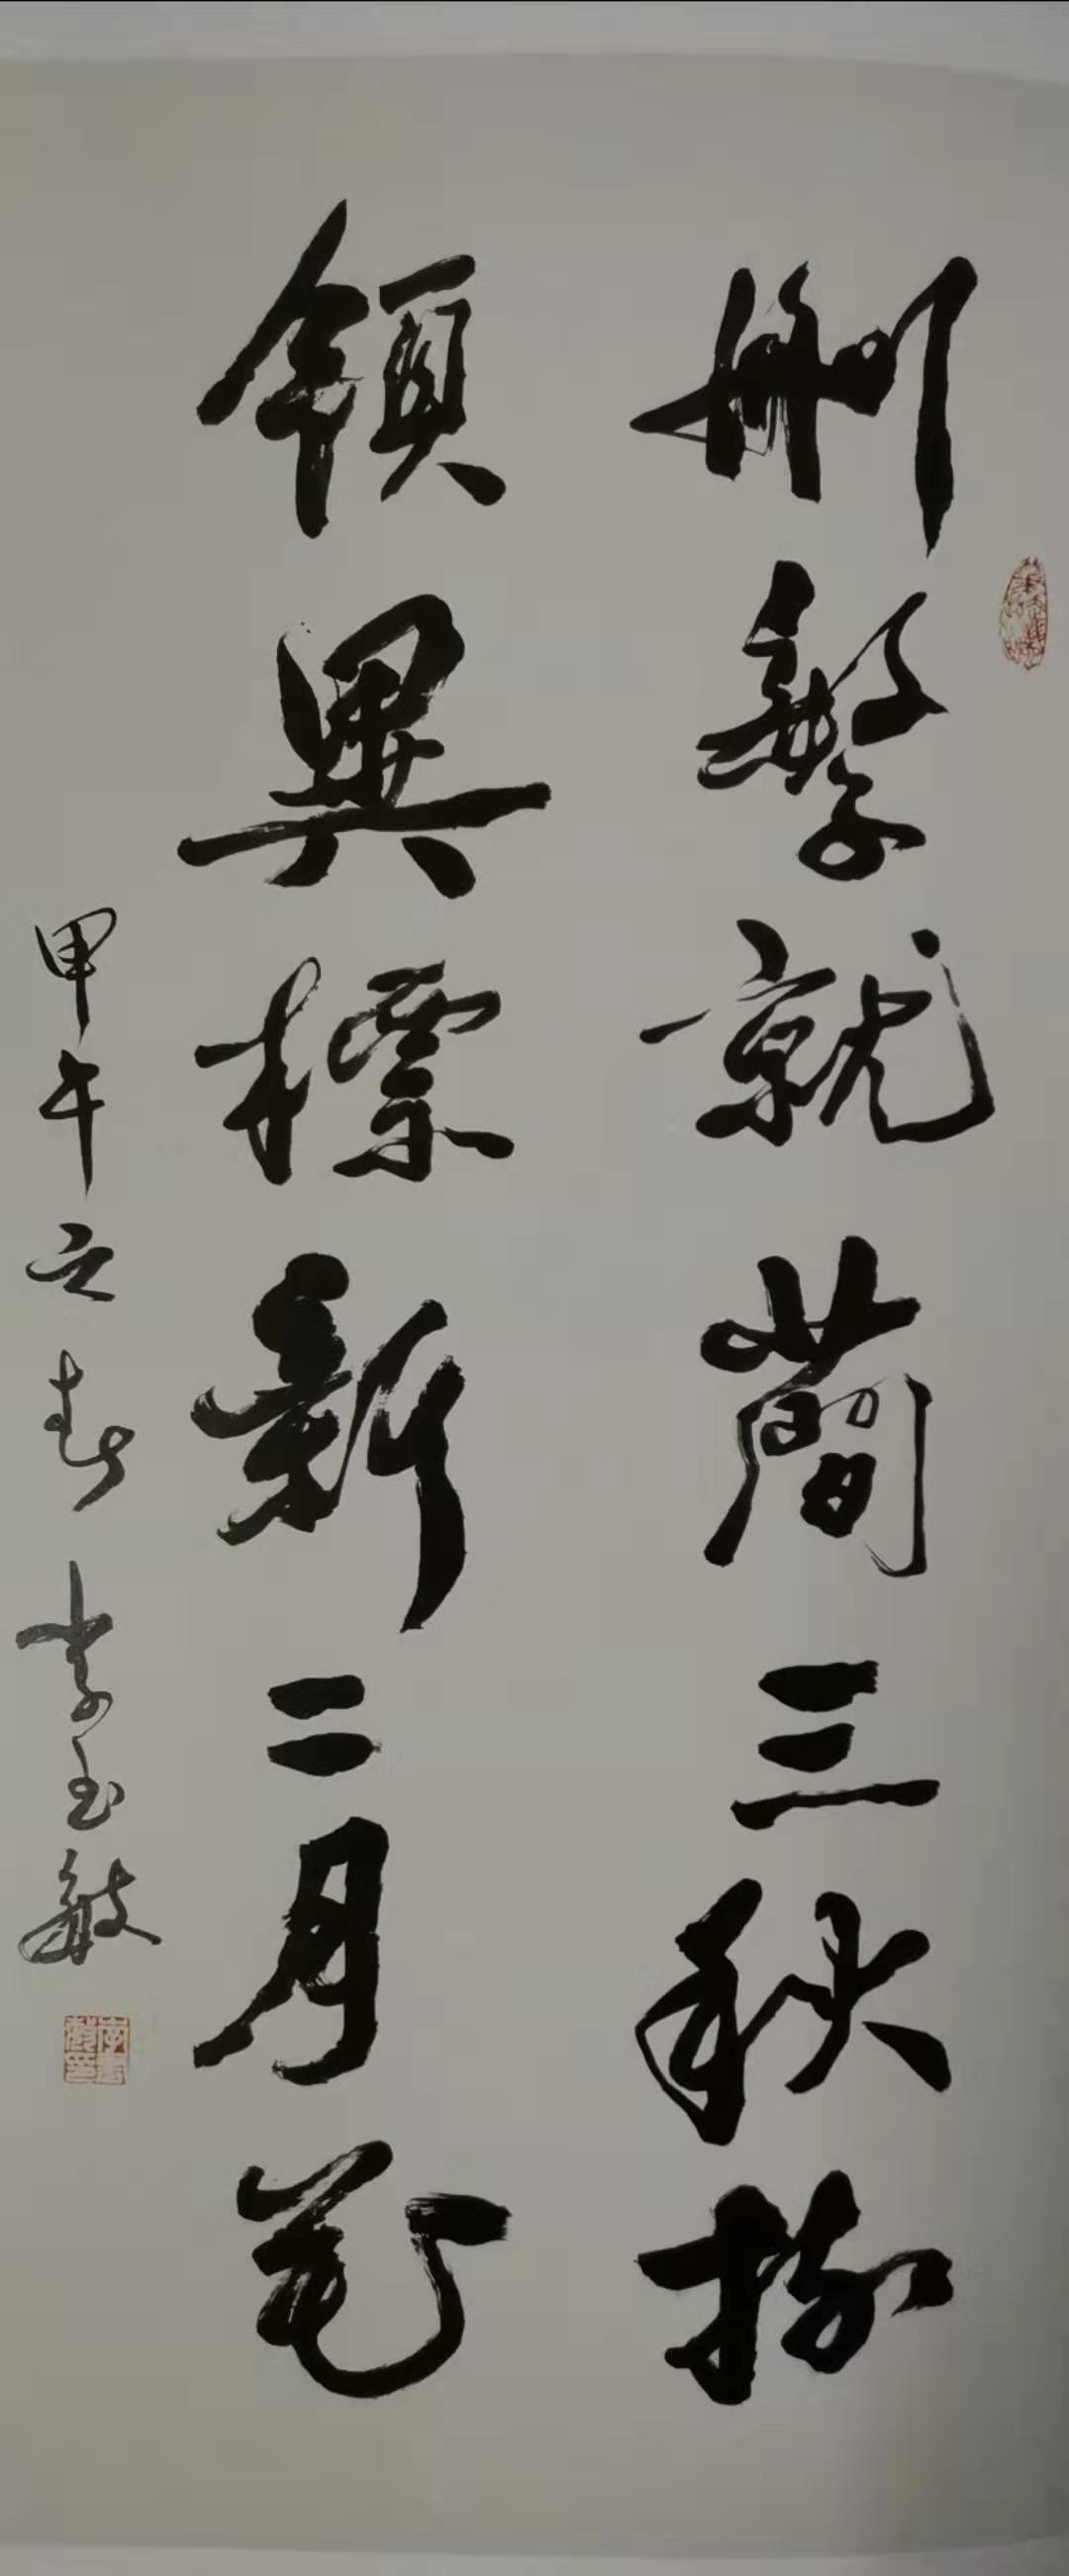 刪繁就簡三秋樹
領異標新二月花
甲午之春李玉敏